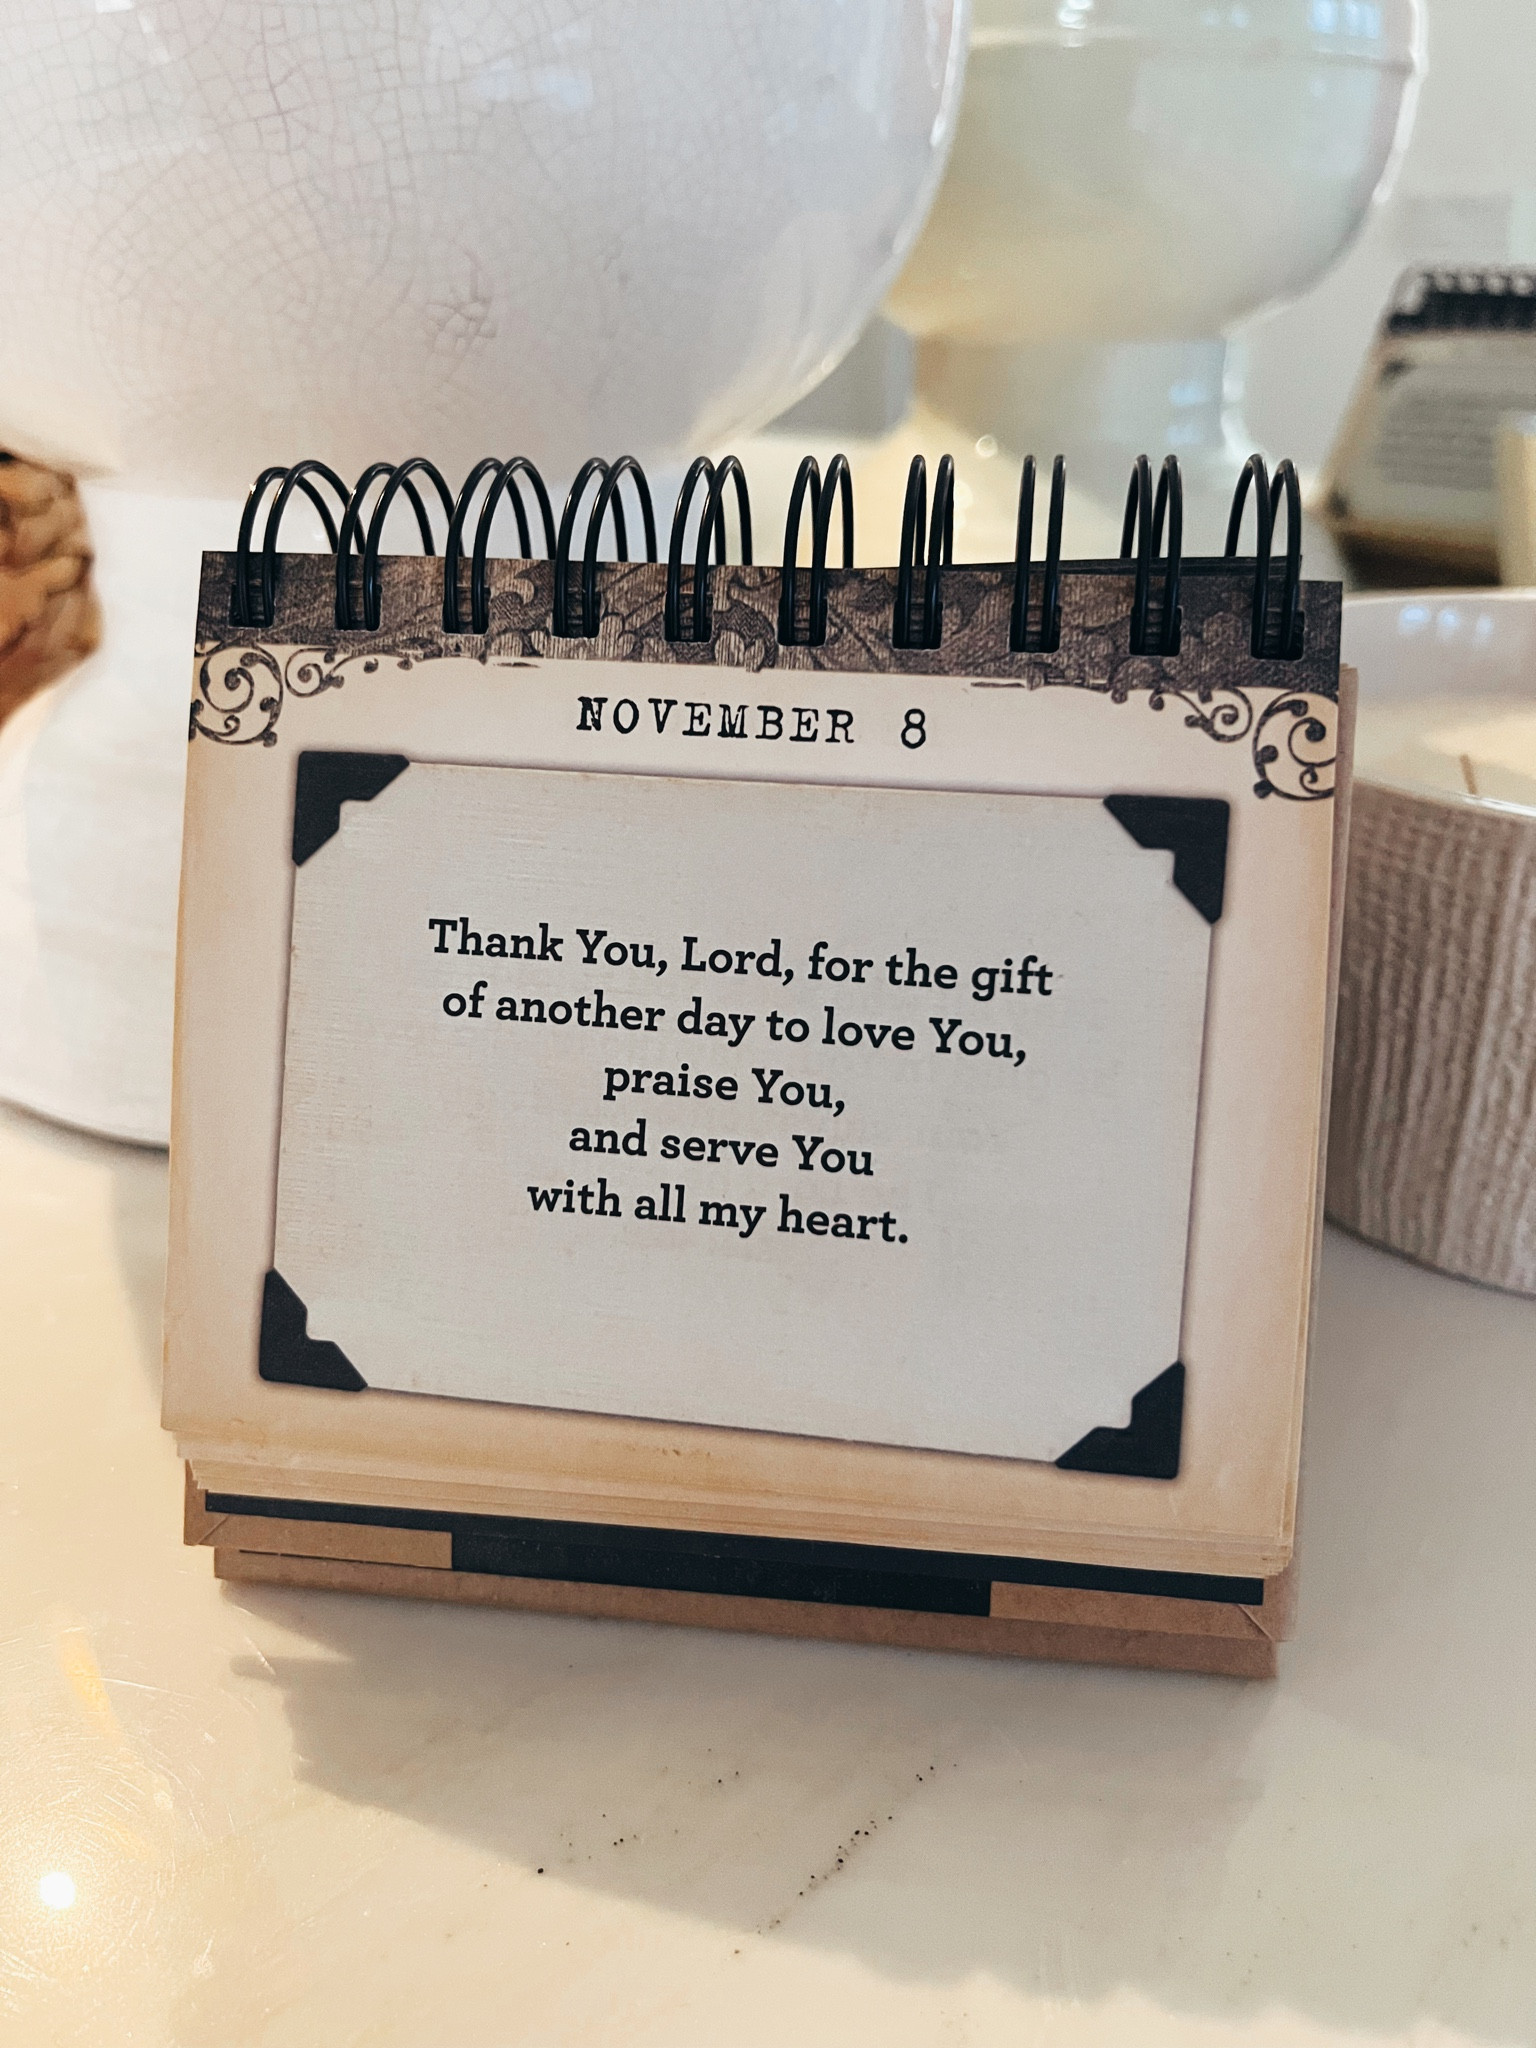 NOVEMBER 8
Thank You, Lord, for the gift
of another day to love You,
praise You,
and serve You
with all my heart.